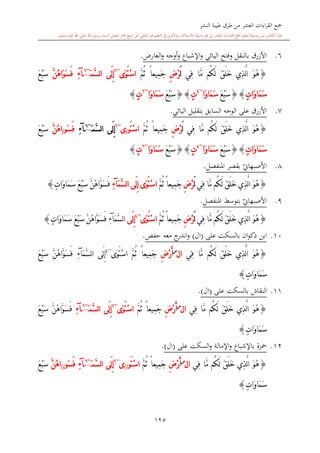 جمع القراءات العشر من طرق طيبة النشر
٦. الأزرق بالنقل وفتح اليائي والإشباع وأوجه والعارض.
﴿ هُوَ الَّذِي خَلَقَ لَكُم مَّا فِي لَرْضِ جَمِيعاً ثُمَّ اسْتَوَى إِلَى السَّمَآءِ فَسَوَّاهُنَّ سَبْعَ
سَمَاوَاتٍ ﴾ ﴿ سَبْعَ سَمَاوَاتٍ ﴾ ﴿ سَبْعَ سَمَاوَاتٍ ﴾
٧. الأزرق على الوجه السابق بتقليل اليائي.
﴿ هُوَ الَّذِي خَلَقَ لَكُم مَّا فِي لَرْضِ جَمِيعاً ثُمَّ اسْتَوَى إِلَى السَّمَآءِ فَسَوَّاهُنَّ سَبْعَ
سَمَاوَاتٍ ﴾ ﴿ سَبْعَ سَمَاوَاتٍ ﴾ ﴿ سَبْعَ سَمَاوَاتٍ ﴾
٨. الأصبهانيّ بقصر المنفصل.
﴿ هُوَ الَّذِي خَلَقَ لَكُم مَّا فِي لَرْضِ جَمِيعاً ثُمَّ اسْتَوَى إِلَى السَّمَآءِ فَسَوَّاهُنَّ سَبْعَ سَمَاوَاتٍ ﴾
٩. الأصبهانيّ بتوسط المنفصل.
﴿ هُوَ الَّذِي خَلَقَ لَكُم مَّا فِي لَرْضِ جَمِيعاً ثُمَّ اسْتَوَى إِلَى السَّمَآءِ فَسَوَّاهُنَّ سَبْعَ سَمَاوَاتٍ ﴾
١٠. ابن ذكوان بالسكت على (ال) واندرج معه حفص.
﴿ هُوَ الَّذِي خَلَقَ لَكُم مَّا فِي الْأَرْضِ جَمِيعاً ثُمَّ اسْتَوَى إِلَى السَّمَآءِ فَسَوَّاهُنَّ سَبْعَ
سَمَاوَاتٍ ﴾
١١. النقاش بالسكت على (ال).
﴿ هُوَ الَّذِي خَلَقَ لَكُم مَّا فِي الْأَرْضِ جَمِيعاً ثُمَّ اسْتَوَى إِلَى السَّمَآءِ فَسَوَّاهُنَّ سَبْعَ
سَمَاوَاتٍ ﴾
١٢. حمزة بالإشباع والإمالة والسكت على (ال).
﴿ هُوَ الَّذِي خَلَقَ لَكُم مَّا فِي الْأَرْضِ جَمِيعاً ثُمَّ اسْتَوَى إِلَى السَّمَآءِ فَسَوَّاهُنَّ سَبْعَ
سَمَاوَاتٍ ﴾
١٢٥